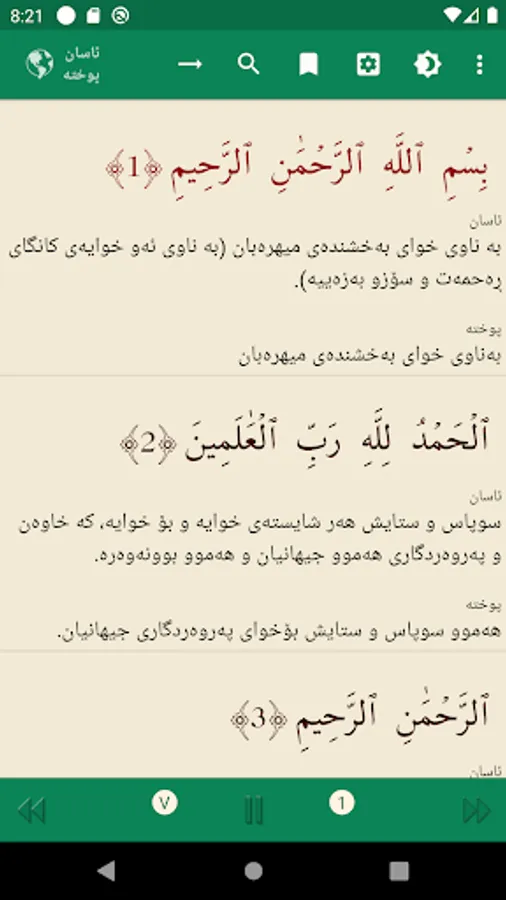 8:21
ئاسان
پوختە
بِسْمِ ٱللَّهِ ٱلرَّحْمَٰنِ ٱلرَّحِيمِ ﴿1﴾
ئاسان
بە ناوی خوای بەخشندەی میهرەبان (بە ناوی ئەو خوایەی کانگای
ڕەحمەت و سۆزو بەزەییە).
پوختە
بەناوی خوای بەخشندەی میهرەبان
ٱلْحَمْدُ لِلَّهِ رَبِّ ٱلْعَٰلَمِينَ ﴿2﴾
ئاسان
سوپاس و ستایش هەر شایستەی خوایە و بۆ خوایە، کە خاوەن
و پەروەردگاری هەموو جیهانیان و هەموو بوونەوەرە.
پوختە
هەموو سوپاس و ستایش بۆخوای پەروەردگاری جیهانیان.
ٱلرَّحْمَٰنِ ٱلرَّحِيمِ ﴿3﴾
ئاسان
٧
1